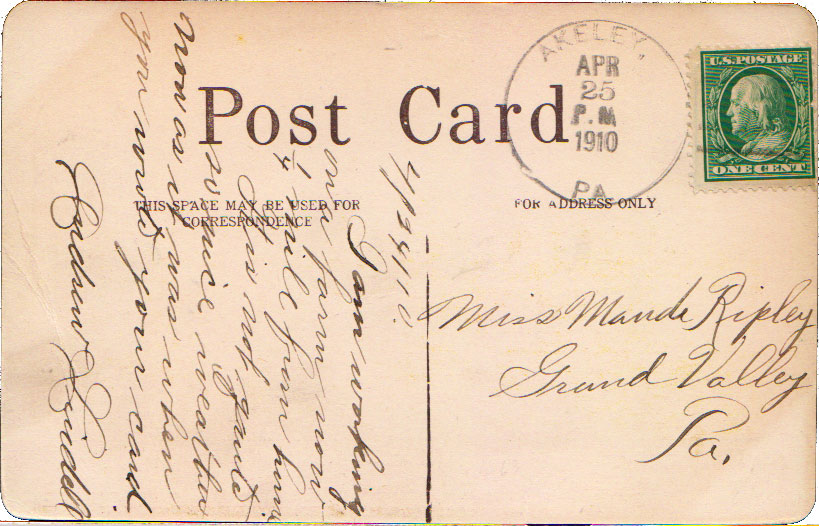 Post Card
THIS SPACE MAY BE USED FOR
CORRESPONDENCE
FOR ADDRESS ONLY
AKELEY,
APR
25
P.M
1910
PA
U.S. POSTAGE
ONE CENT
4/24/10
I am working
on a farm now
1/4 mile from home
It is not quite
so nice weather
now as it was when
you wrote your card
Andrew Lindell
Miss Maude Ripley
Grand Valley
Pa.